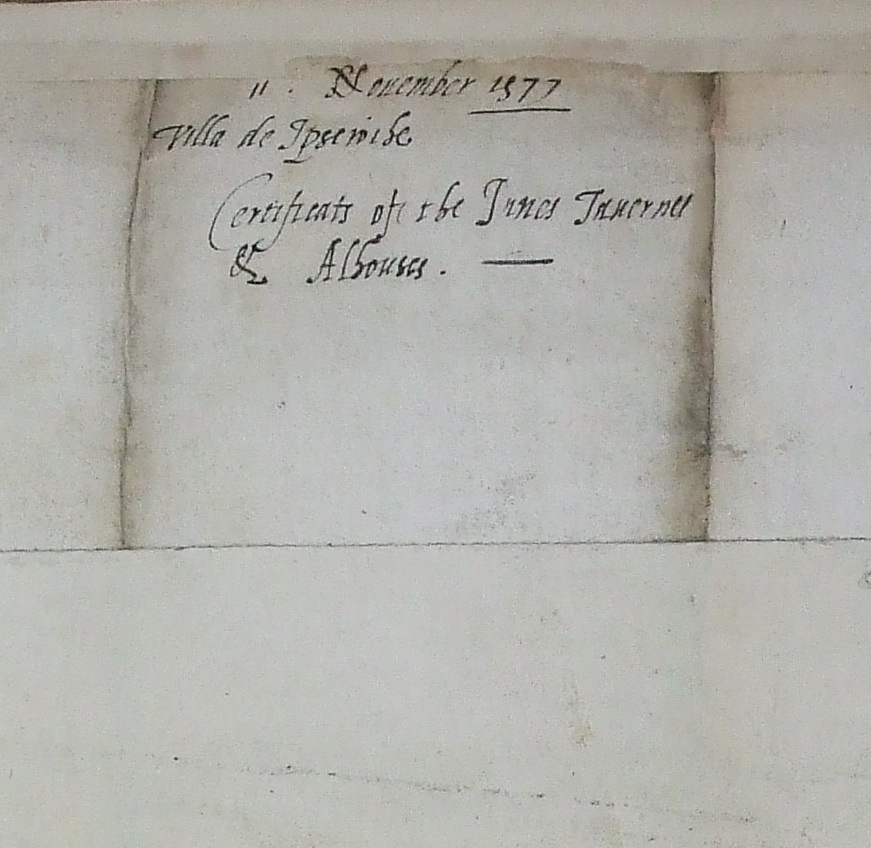 11 . Nouember 1577
Villa de Ipsewiche
Certificats of the Innes Tauernes
& Alhouses . —